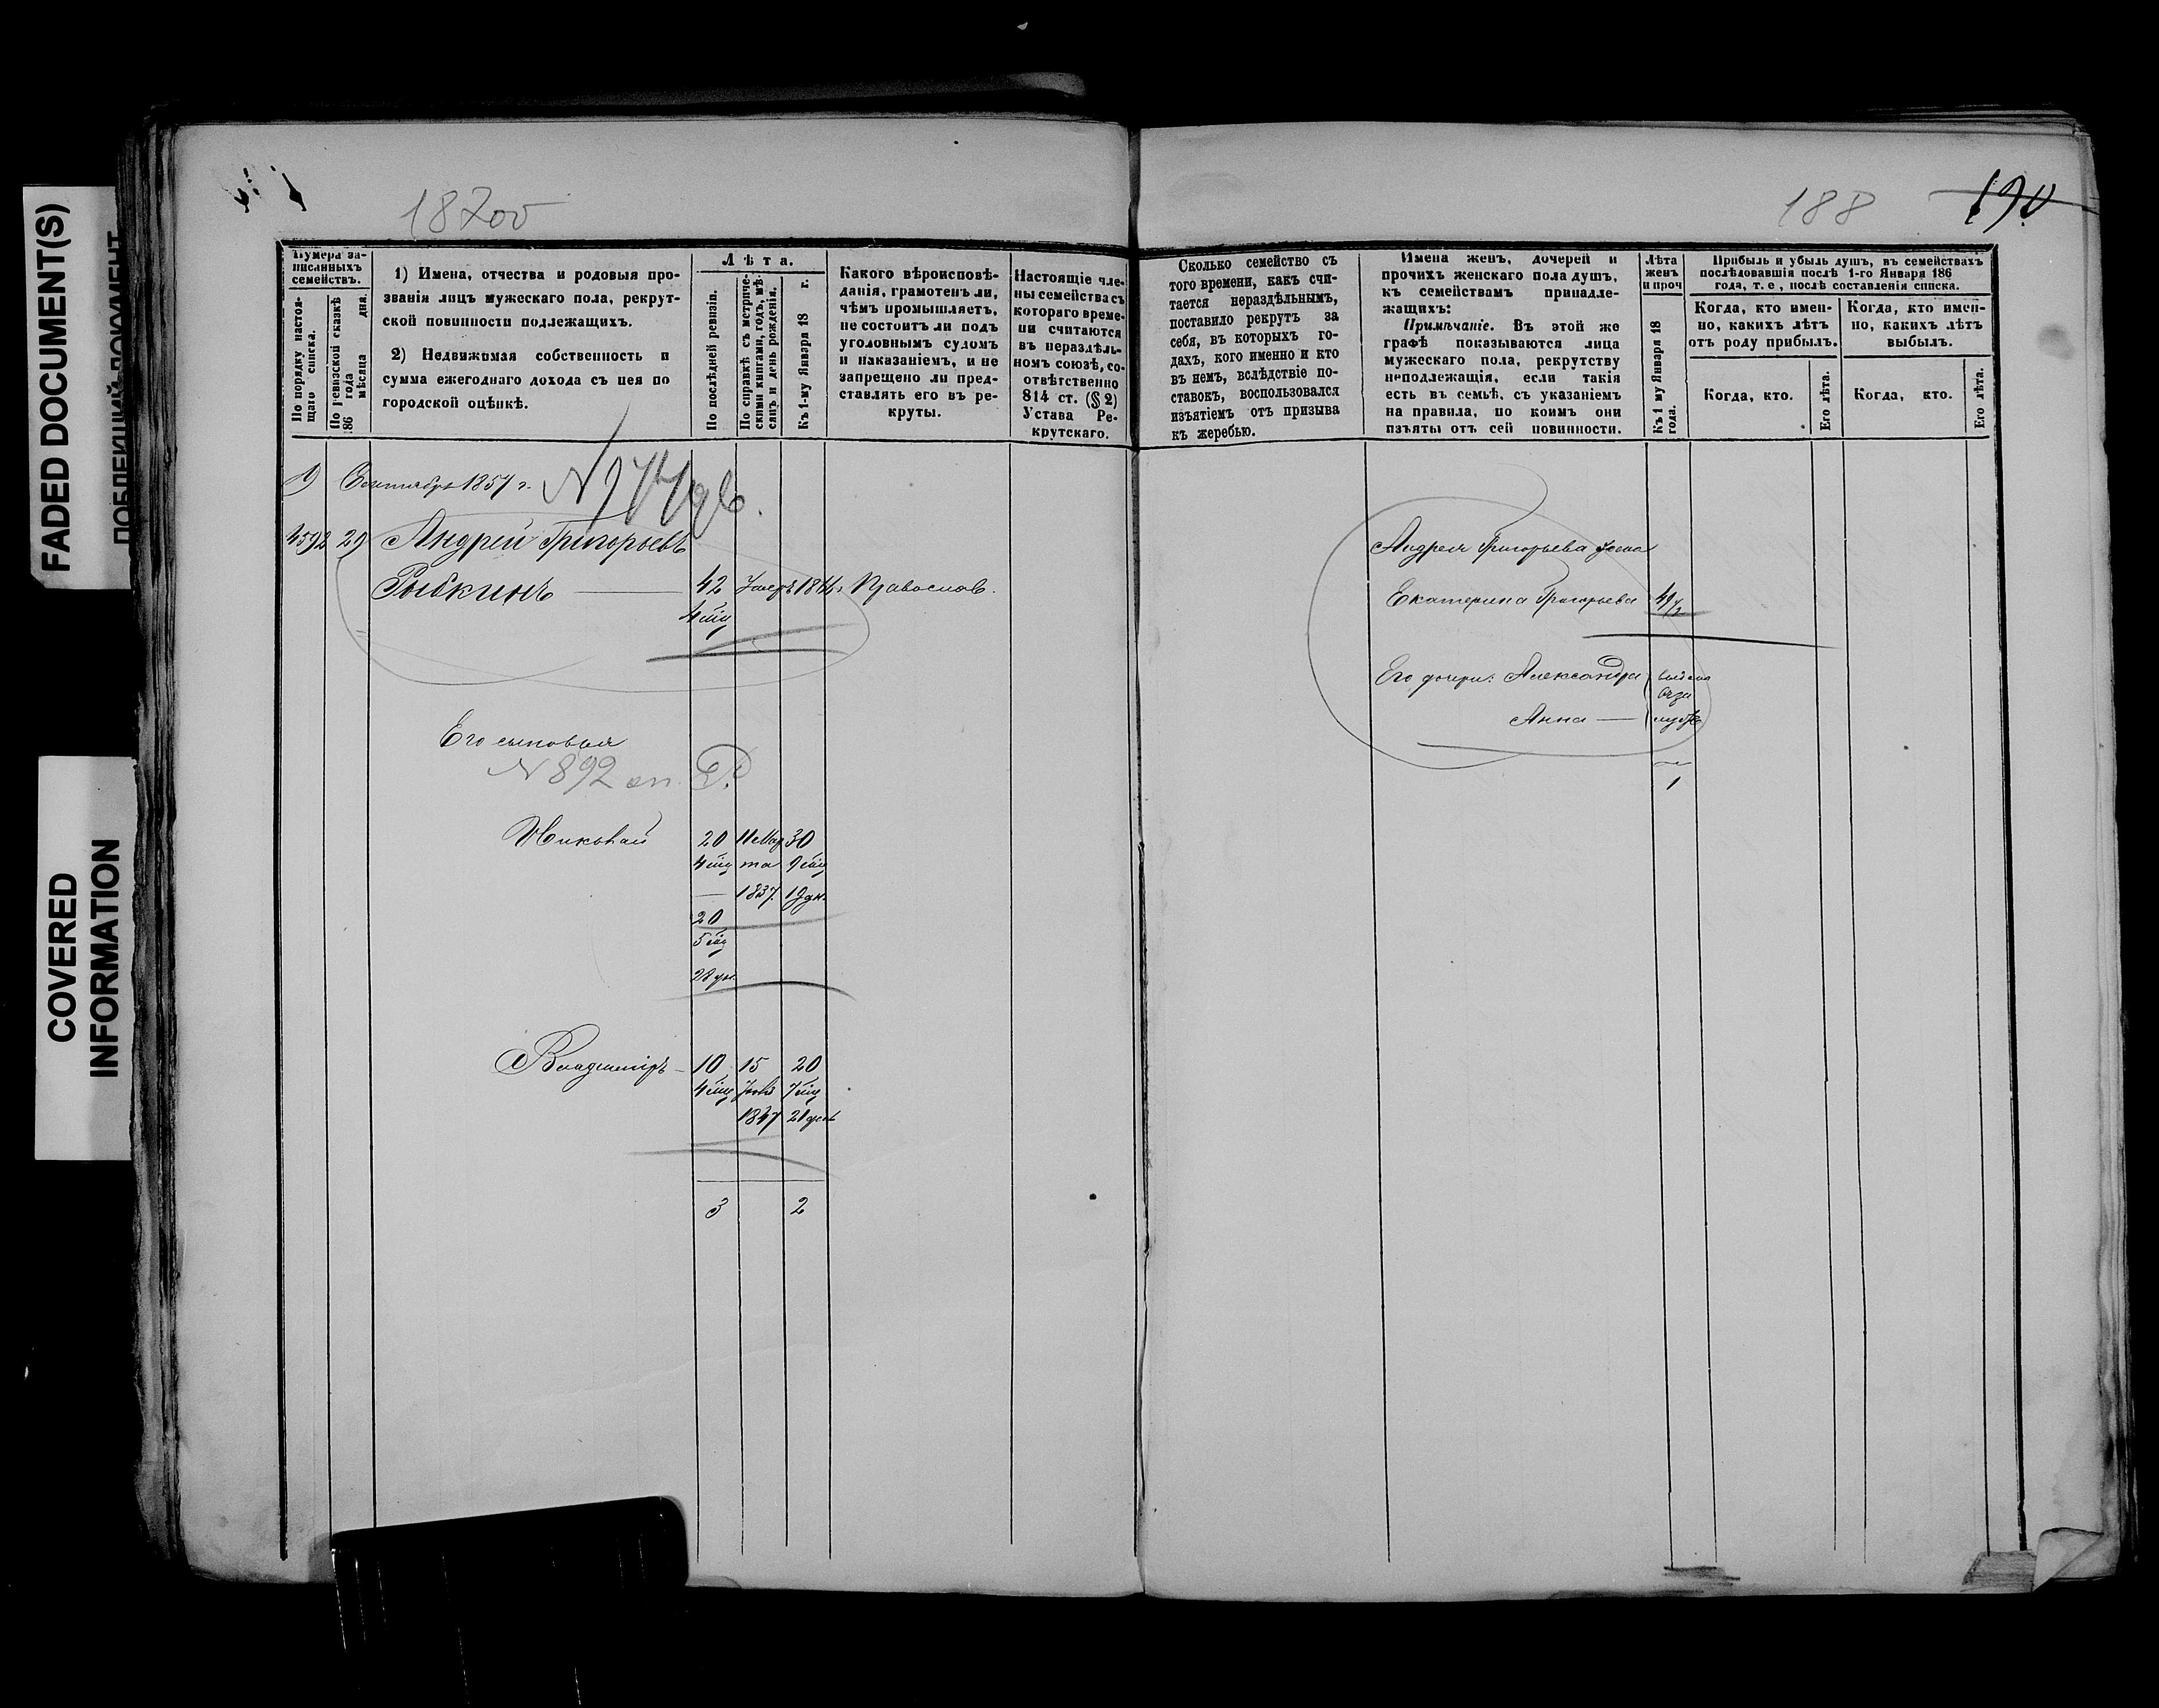 FADED DOCUMENT(S)
COVERED
INFORMATION
187об
Нумера за-
писанныхъ
семействъ.
По порядку настоя-
щаго списка.
По ревизской сказкѣ
186 года мѣсяца дня.
1) Имена, отчества и родовыя про-
званія лицъ мужескаго пола, рекрут-
ской повинности подлежащихъ.
2) Недвижимая собственность и
сумма ежегоднаго дохода съ нея по
городской оцѣнкѣ.
Лѣта.
По послѣдней ревизіи.
По справкѣ съ метриче-
скими книгами, годъ, мѣ-
сяцъ и день рожденія.
Къ 1-му Января 18 г.
Какого вѣроисповѣ-
данія, грамотенъ ли,
чѣмъ промышляетъ,
не состоитъ ли подъ
уголовнымъ судомъ
и наказаніемъ, и не
запрещено ли пред-
ставлять его въ ре-
круты.
Настоящіе чле-
ны семейства съ
котораго време-
ни считаются
въ нераздѣль-
номъ союзѣ, со-
отвѣтственно
814 ст. (§ 2)
Устава Ре-
крутскаго.
9 Сентября 1857 г.
4592 29 Андрей Григорьевъ
Рыбкинъ 42 Православ.
4 мц
Его сыновья
N 892
Николай 20 11 Мар 30
4 мц та 9 мц
1837. 19 дн.
20
5 мц
28 дн.
Владиміръ 10 15 20
4 мц 7 мц
1847
3 2
188 190
Сколько семейство съ
того времени, какъ счи-
тается нераздѣльнымъ,
поставило рекрутъ за
себя, въ которыхъ го-
дахъ, кого именно и кто
въ немъ, вслѣдствіе по-
ставокъ, воспользовался
изъятіемъ отъ призыва
къ жеребью.
Имена женъ, дочерей и
прочихъ женскаго пола душъ,
къ семействамъ принадле-
жащихъ:
Примѣчаніе. Въ этой же
графѣ показываются лица
мужескаго пола, рекрутству
неподлежащія, если такія
есть въ семьѣ, съ указаніемъ
на правила, по коимъ они
изъяты отъ сей повинности.
Лѣта
женъ
и проч
Къ 1 му Января 18
года.
Прибыль и убыль душъ, въ семействахъ
послѣдовавшія послѣ 1-го Января 186
года, т. е., послѣ составленія списка.
Когда, кто имен-
но, какихъ лѣтъ
отъ роду прибылъ.
Когда, кто.
Его лѣта.
Когда, кто имен-
но, какихъ лѣтъ
выбылъ.
Когда, кто.
Его лѣта.
Андрея Григорьева жена
Екатерина Григорьева
Его дочери: Александра выдана
въ за
Анна мужъ
1